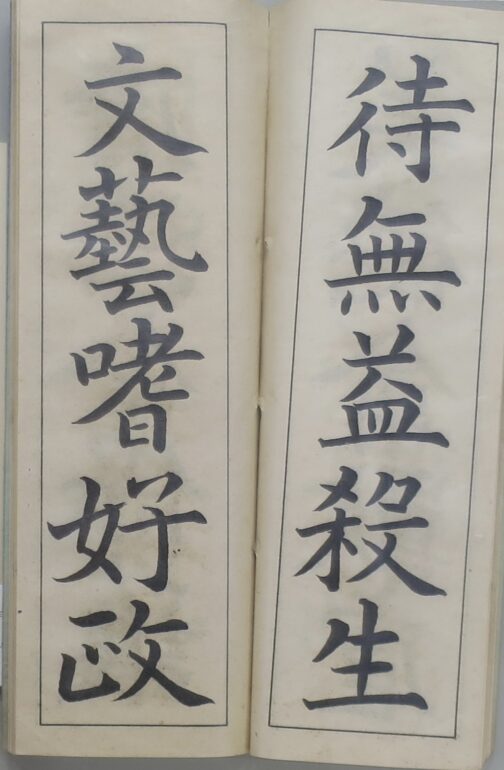 待無益殺生
文藝嗜好政